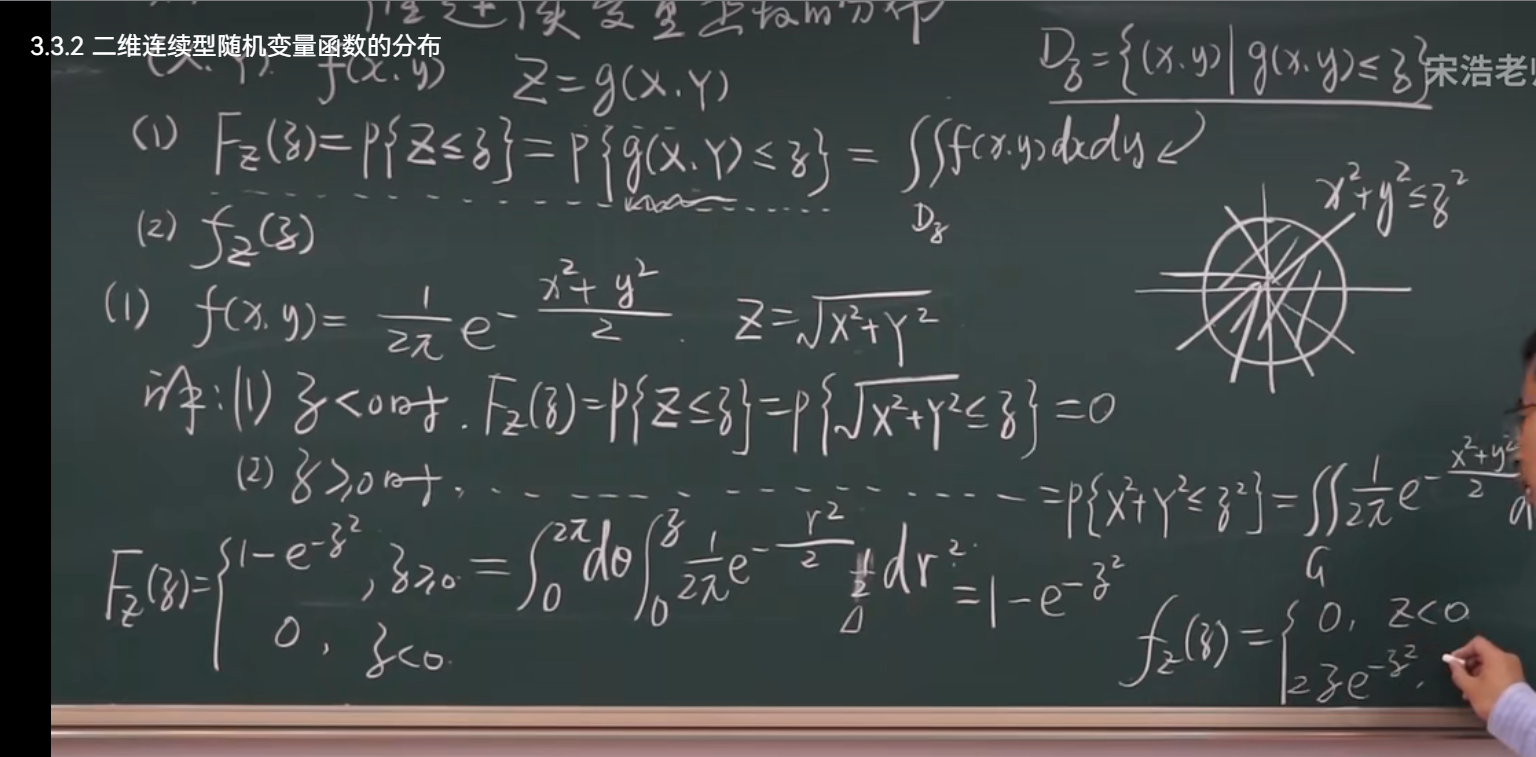 3.3.2 二维连续型随机变量函数的分布
(X,Y) f(x,y) Z=g(X,Y)
D_z={(x,y)|g(x,y)≤z}
宋浩老
(1) F_Z(z)=P{Z≤z}=P{g(X,Y)≤z}=∬f(x,y)dxdy
D_z
x²+y²≤z²
(2) f_Z(z)
(1) f(x,y)=1/2π e^{-(x²+y²)/2}. Z=√(X²+Y²)
解:(1) z<0时. F_Z(z)=P{Z≤z}=P{√(X²+Y²)≤z}=0
(2) z≥0时. =P{X²+Y²≤z²}=∬1/2π e^{-(x²+y²)/2}
G
F_Z(z)={1-e^{-z²}, z≥0. =∫_0^{2π}dθ∫_0^z 1/2π e^{-r²/2} 1/2 dr² =1-e^{-z²}
0, z<0.
f_Z(z)={0, z<0
2ze^{-z²},